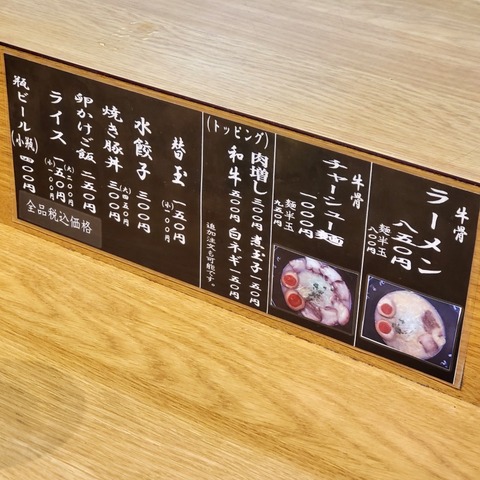 牛骨
ラーメン
八五〇円
麺半玉
八〇〇円
牛骨
チャーシュー麺
一〇〇〇円
麺半玉
九五〇円
(トッピング)
肉増し 三〇〇円
煮玉子 一五〇円
和牛 五〇〇円
白ネギ 一五〇円
追加注文も可能です。
替玉 一五〇円
(小)一〇〇円
水餃子 三〇〇円
焼き豚丼 三〇〇円
(大)五〇〇円
卵かけご飯 二五〇円
ライス 一五〇円
(小)一〇〇円
瓶ビール(小瓶) 四〇〇円
全品税込価格